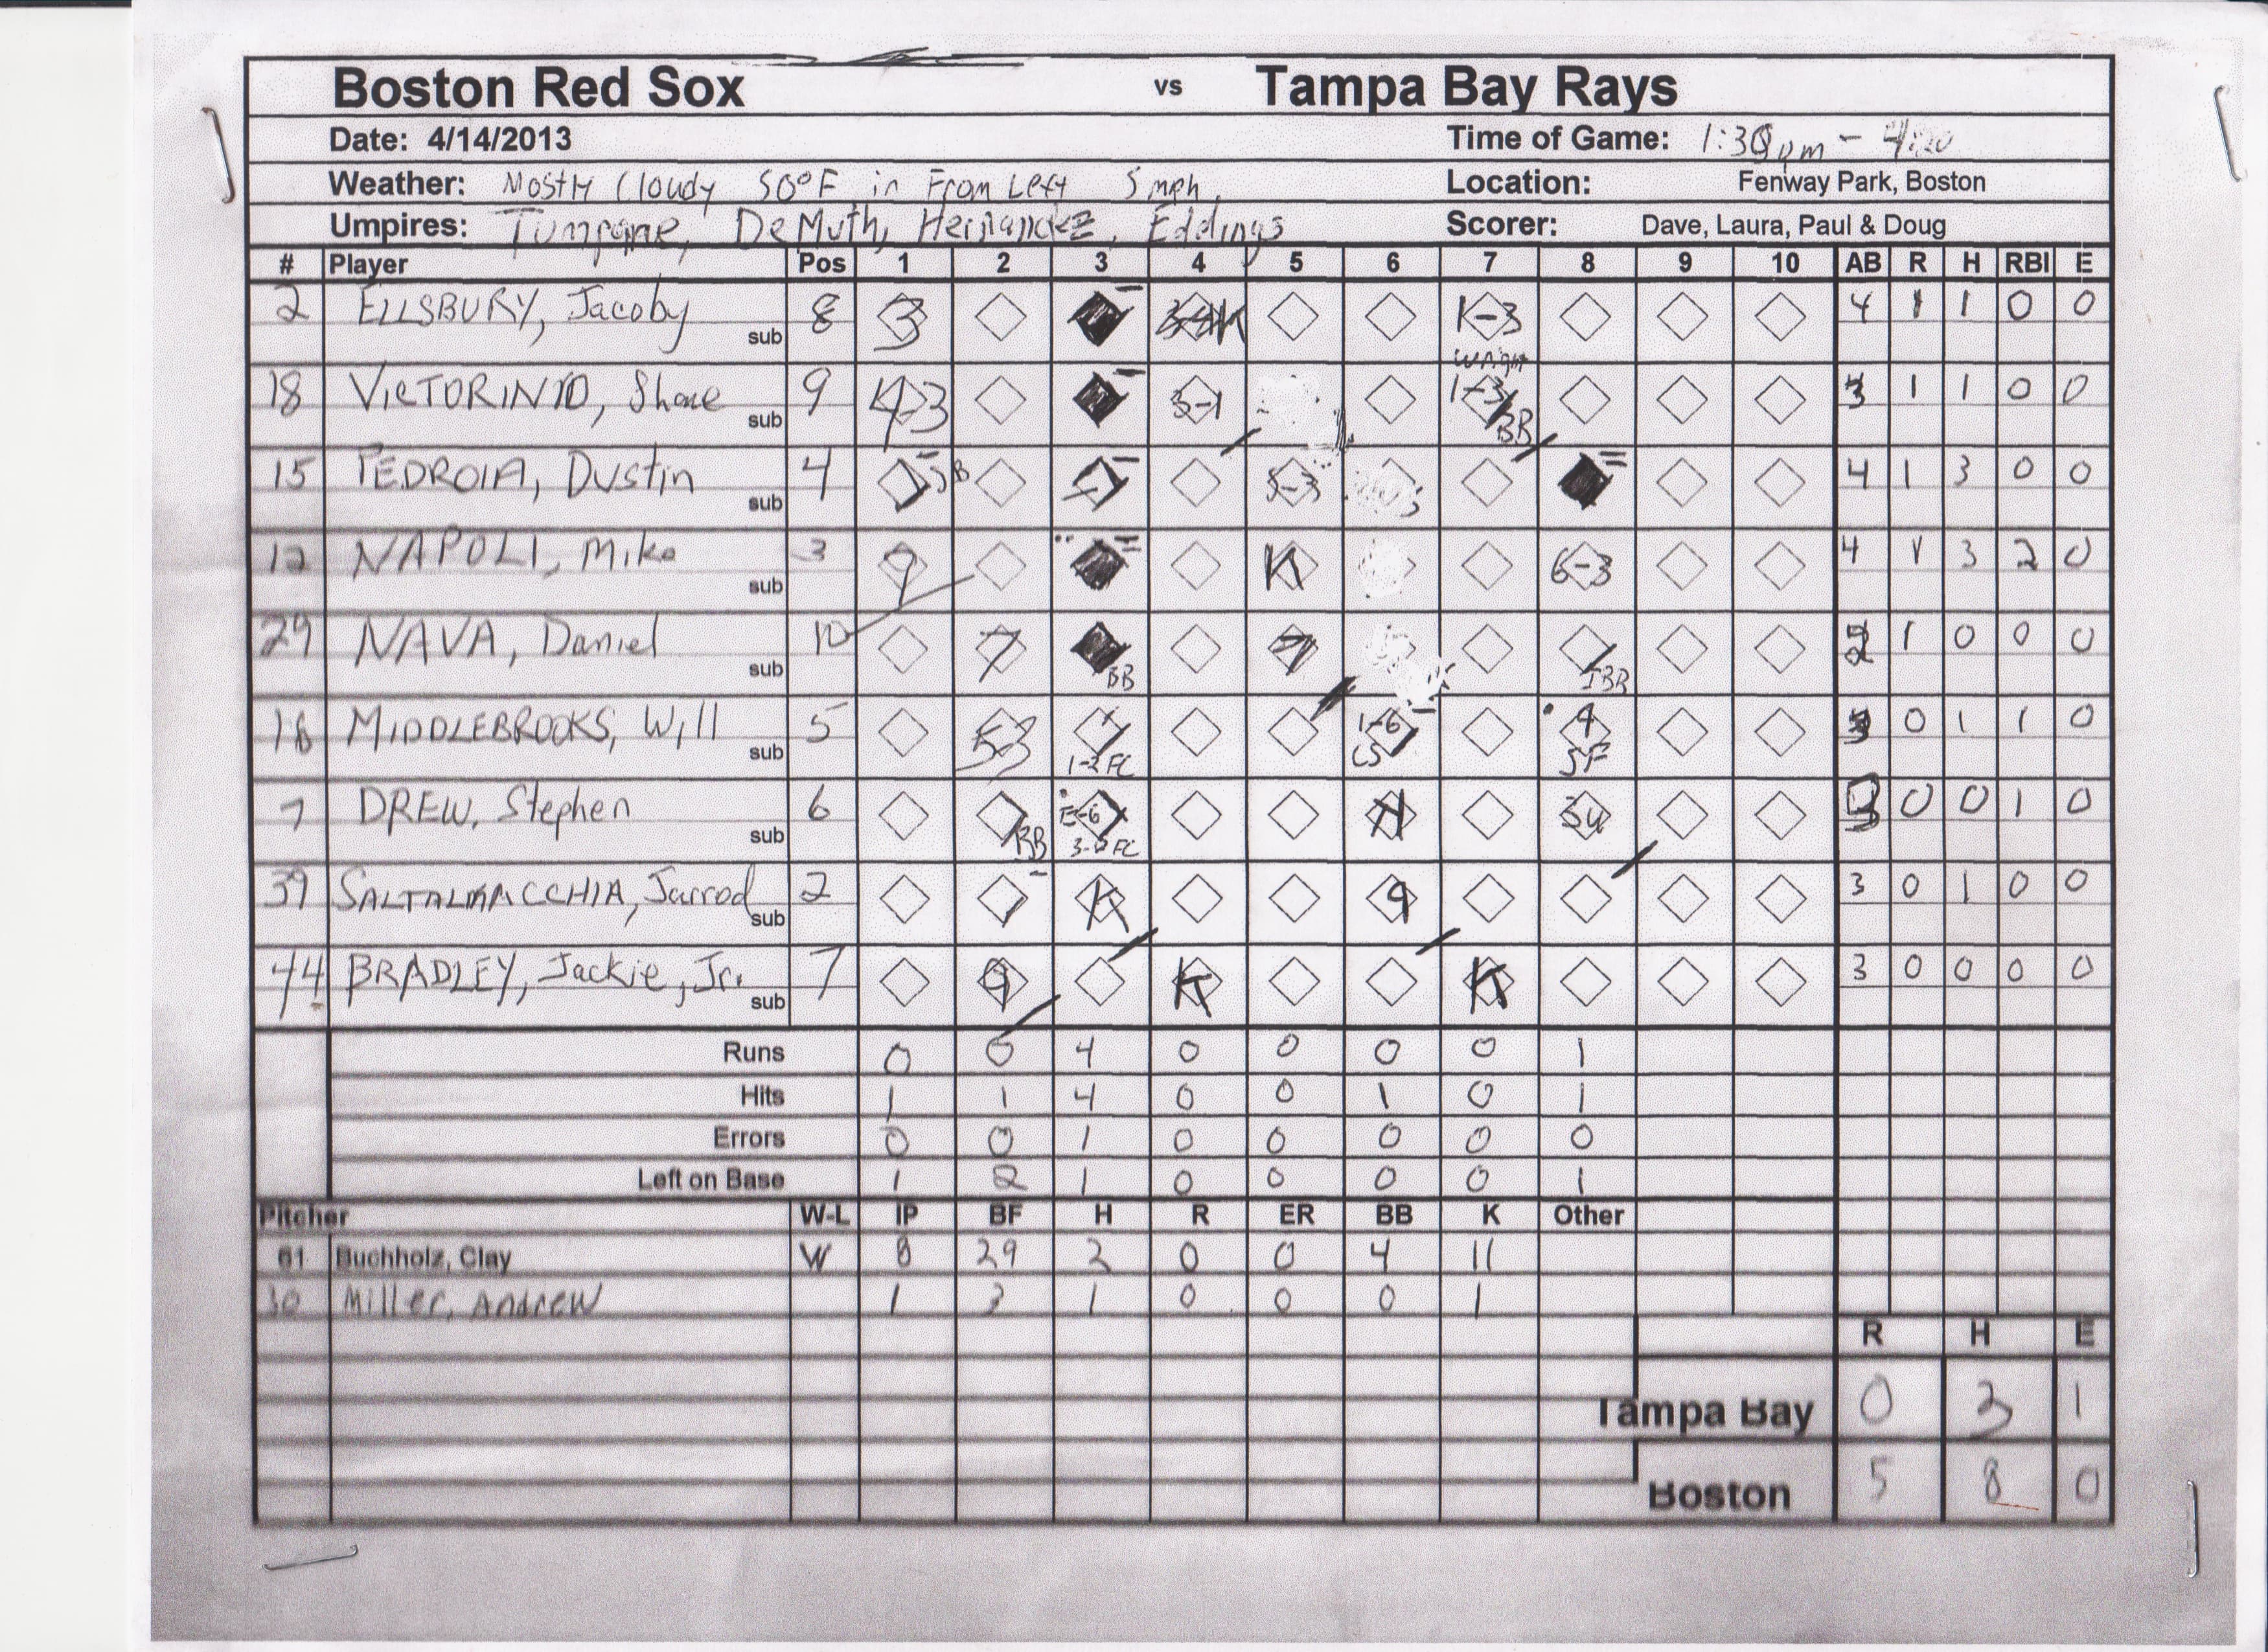 Boston Red Sox vs Tampa Bay Rays
Date: 4/14/2013 Time of Game: 1:30pm - 4:20
Weather: Mostly Cloudy 50°F in From Left 5 mph Location: Fenway Park, Boston
Umpires: DeMuth, Eddings Scorer: Dave, Laura, Paul & Doug
# Player Pos 1 2 3 4 5 6 7 8 9 10 AB R H RBI E
2 ELLSBURY, Jacoby sub 8 3 K-3 4 1 1 0 0
18 VICTORINO, Shane sub 9 4-3 3-1 Wright 1-3 BB 3 1 1 0 0
15 PEDROIA, Dustin sub 4 SB 5-3 4 1 3 0 0
12 NAPOLI, Mike sub 3 9 K 6-3 4 1 3 2 0
29 NAVA, Daniel sub 10 7 BB 7 IBB 2 1 0 0 0
16 MIDDLEBROOKS, Will sub 5 53 1-2 FC 1-6 CS 9 SF 3 0 1 1 0
7 DREW, Stephen sub 6 BB E-6 FC K 3u 3 0 0 1 0
39 SALTALAMACCHIA, Jarrod sub 2 K 9 3 0 1 0 0
44 BRADLEY, Jackie, Jr. sub 7 9 K K 3 0 0 0 0
Runs 0 0 4 0 0 0 0 1
Hits 1 1 4 0 0 1 0 1
Errors 0 0 1 0 0 0 0 0
Left on Base 1 2 1 0 0 0 0 1
Pitcher W-L IP BF H R ER BB K Other
61 Buchholz, Clay W 8 29 2 0 0 4 11
30 Miller, Andrew 1 3 1 0 0 0 1
R H E
Tampa Bay 0 3 1
Boston 5 8 0